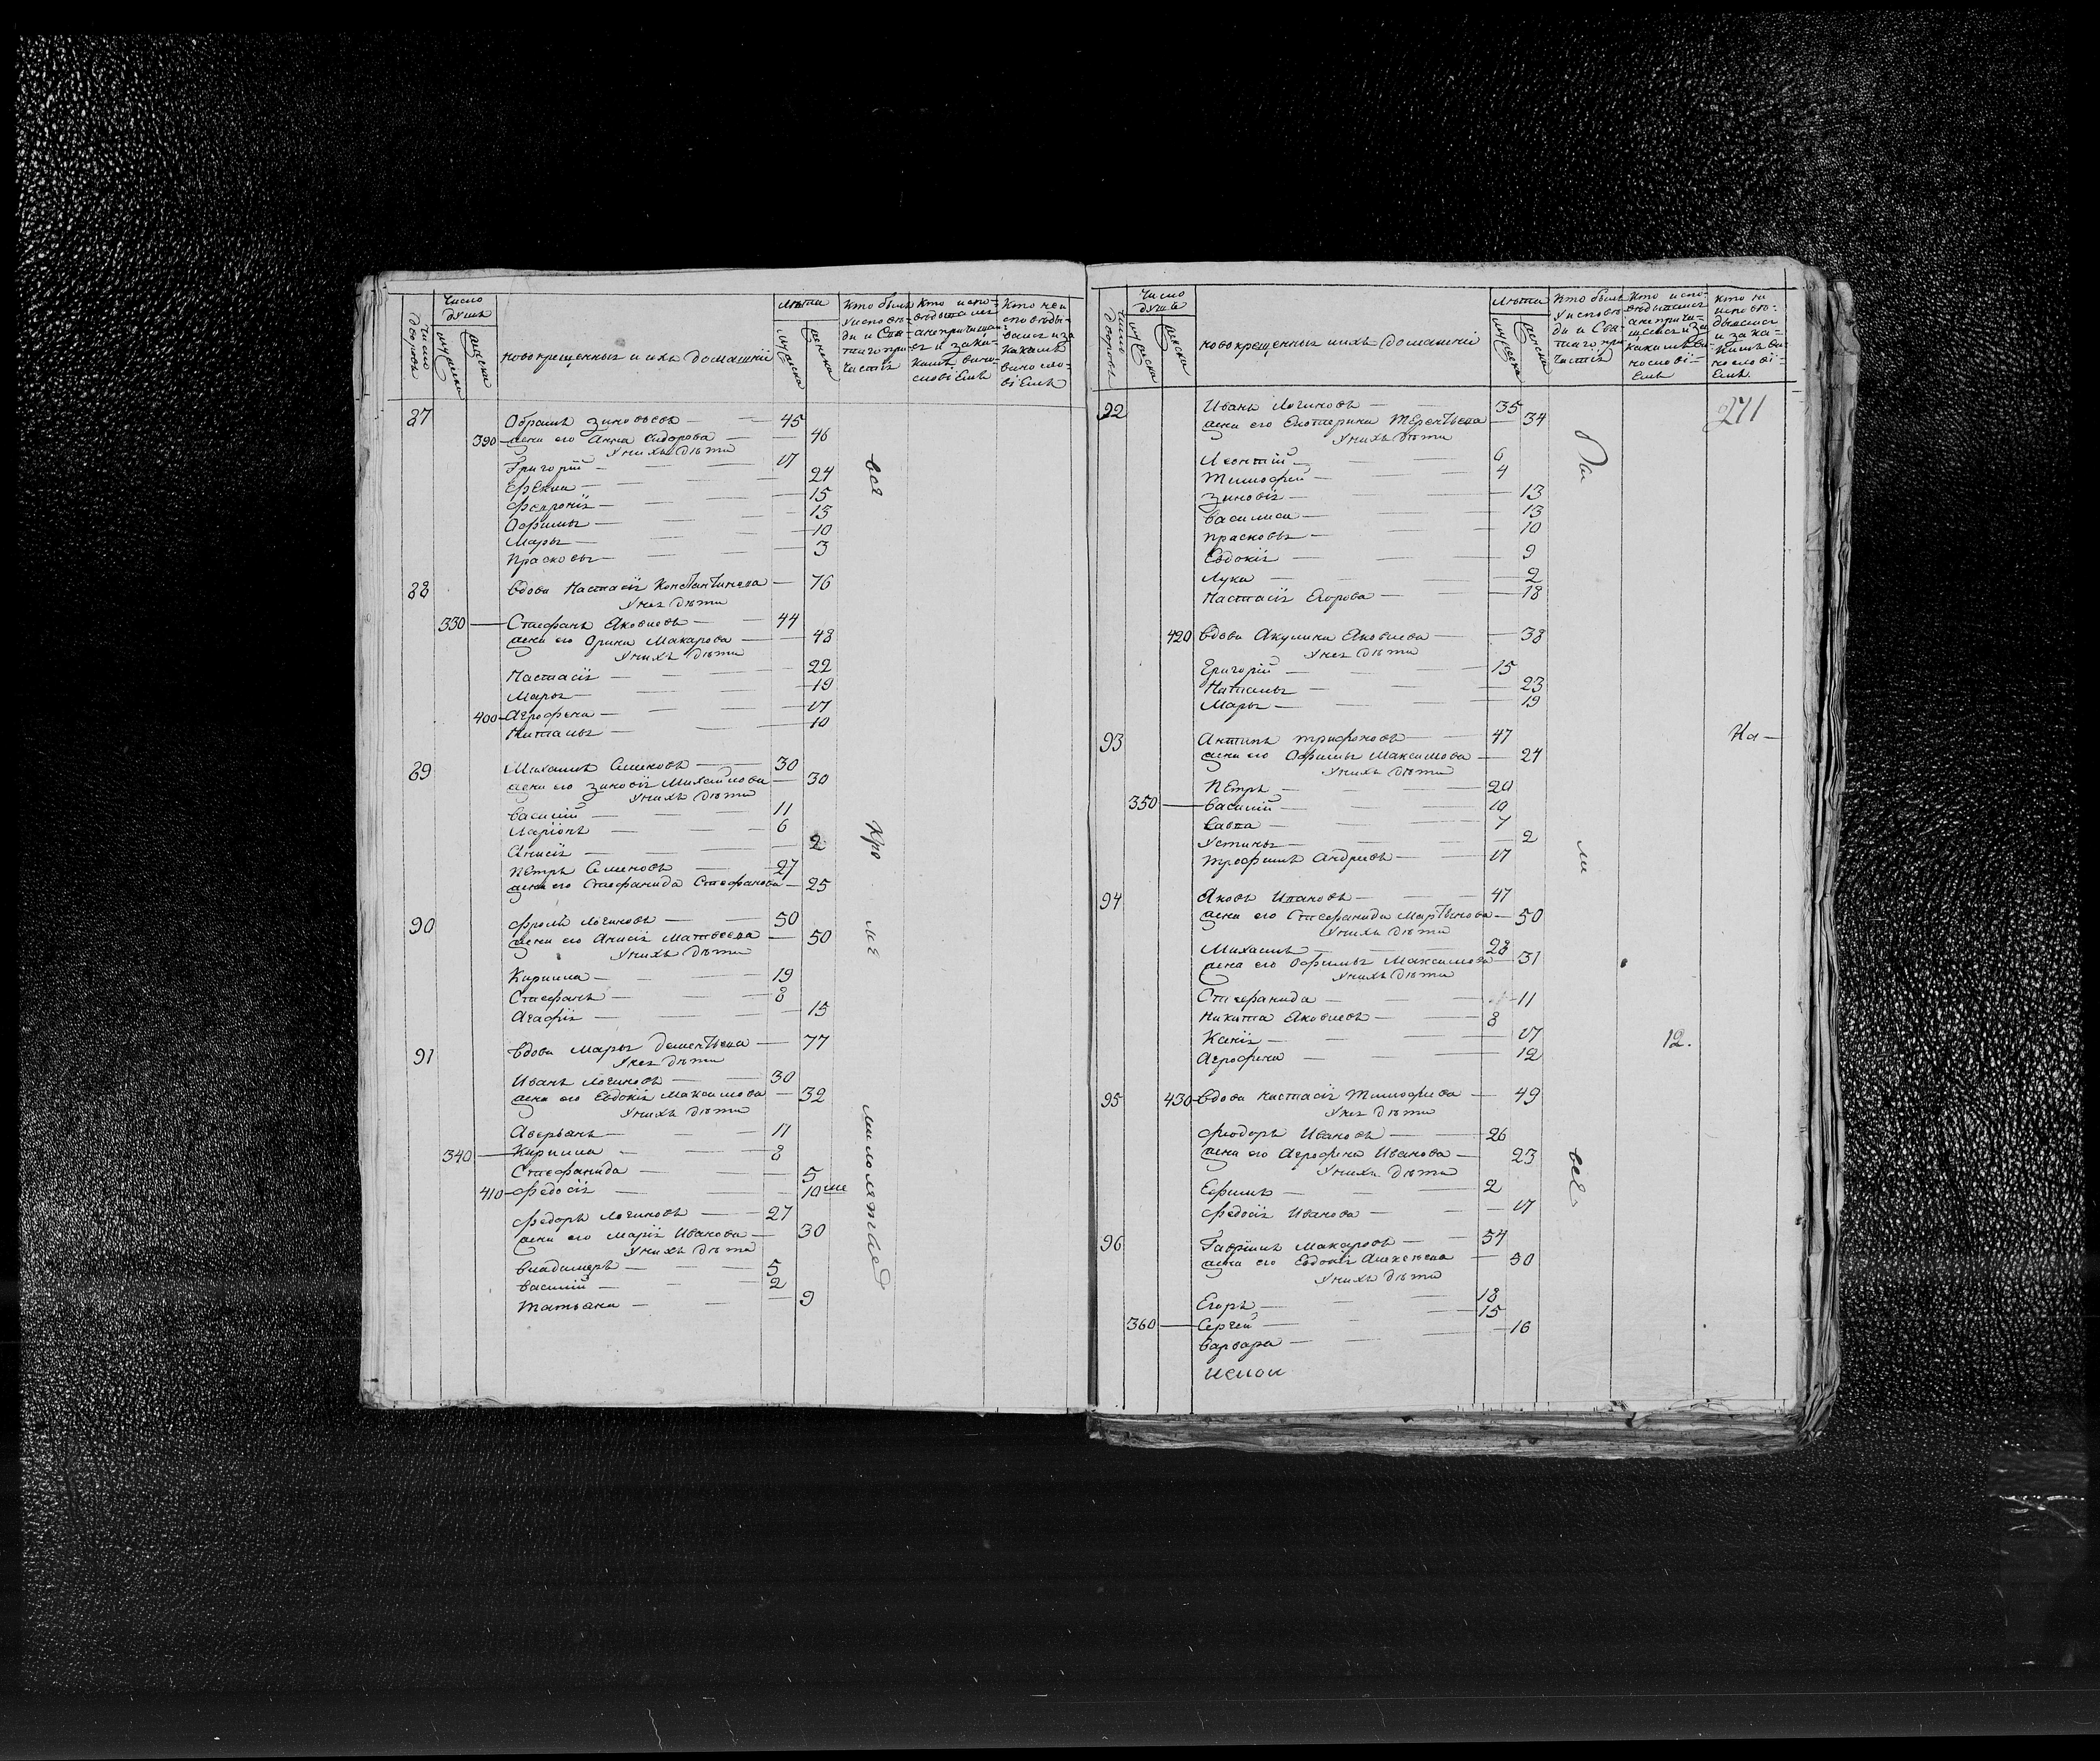 Число дворовъ
Число душъ
мужеска
женска
новокрещенныя и ихъ домашнїи
лѣта
мужеска
женска
Кто былъ
у исповѣ-
ди и Свя-
таго при-
частїя
Кто испо-
вѣдыва лся
а не причаща
лся и за ка-
кимъ вино-
словїемъ
Кто не и
сповѣды-
вался и за
какимъ
винosло-
вїемъ
87 Обрамъ Зиновьевъ — 45
390 жена его Анна Сидорова — 46
У нихъ дѣти
Григорїй — 17
Ефенья — 24
Февронїя — 15
Офимья — 15
Марья — 10
Прасковья — 3
88 вдова Настасїя Константинова — 76
У нея дѣти
330 Стефанъ Яковлевъ — 44
жена его Орина Макарова — 48
У нихъ дѣти
Настасїя — 22
Марья — 19
400 Агрофена — 17
Наталья — 10
89 Михаилъ Семеновъ — 30
жена его Зиновїя Михайлова — 30
У нихъ дѣти
Василїй — 11
Ларїонъ — 6
Анисїя — 2
Петръ Семеновъ — 27
жена его Стефанида Стефанова — 25
90 Фролъ Логиновъ — 50
жена его Анисїя Матвеева — 50
У нихъ дѣти
Кирила — 19
Стефанъ — 8
Агафїя — 15
91 вдова Марья Дементьева — 77
У нея дѣти
Иванъ Логиновъ — 30
жена его Евдокїя Максимова — 32
У нихъ дѣти
Аверьянъ — 11
340 Кирила — 8
Стефанида — 5
410 Федосїя — 10
Федоръ Логиновъ — 27
жена его Марїя Иванова — 30
У нихъ дѣти
Владимеръ — 5
Василїй — 2
Татьяна — 9
вся
кро
мѣ
малолѣтнаго
Число дворовъ
Число душъ
мужеска
женска
новокрещенныя и ихъ домашнїи
лѣта
мужеска
женска
Кто былъ
у исповѣ-
ди и Свя-
таго при-
частїя
Кто испо-
вѣдывался
а не прича-
щался и за
какимъ ви-
нословї-
емъ
Кто не
исповѣ-
дывался
и за ка-
кимъ ви-
нословї-
емъ
271
92 Иванъ Логиновъ — 35
жена его Екатерина Терентьева — 34
У нихъ дѣти
Леонтїй — 6
Тимофей — 4
Зиновїя — 13
Василиса — 13
Прасковья — 10
Евдокїя — 9
Лука — 2
Настасїя Егорова — 18
420 вдова Акулина Яковлева — 38
У нея дѣти
Григорїй — 15
Наталья — 23
Марья — 19
93 Антипъ Трифоновъ — 47
жена его Офимья Максимова — 24
У нихъ дѣти
Петръ — 20
350 Василїй — 10
Савва — 7
Устинья — 2
Трофимъ Андреевъ — 17
На —
94 Яковъ Ивановъ — 47
жена его Стефанида Мартынова — 50
У нихъ дѣти
Михаилъ — 28
жена его Офимья Максимова — 31
У нихъ дѣти
Стефанида — 11
Никита Яковлевъ — 8
Ксенїя — 17
Агрофена — 12
12.
95 430 вдова Настасїя Тимофеева — 49
У нея дѣти
Федоръ Ивановъ — 26
жена его Агрофена Иванова — 23
У нихъ дѣти
Ефимъ — 2
Федосїя Иванова — 17
96 Гаврилъ Макаровъ — 54
жена его Евдокїя Алексеева — 50
У нихъ дѣти
Егоръ — 18
360 Сергей — 15
Варвара — 16
ли
вся